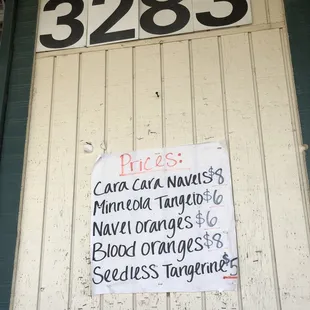 3283
Prices:
Cara Cara Navels $8
Minneola Tangelo $6
Navel oranges $6
Blood oranges $8
Seedless Tangerine $5